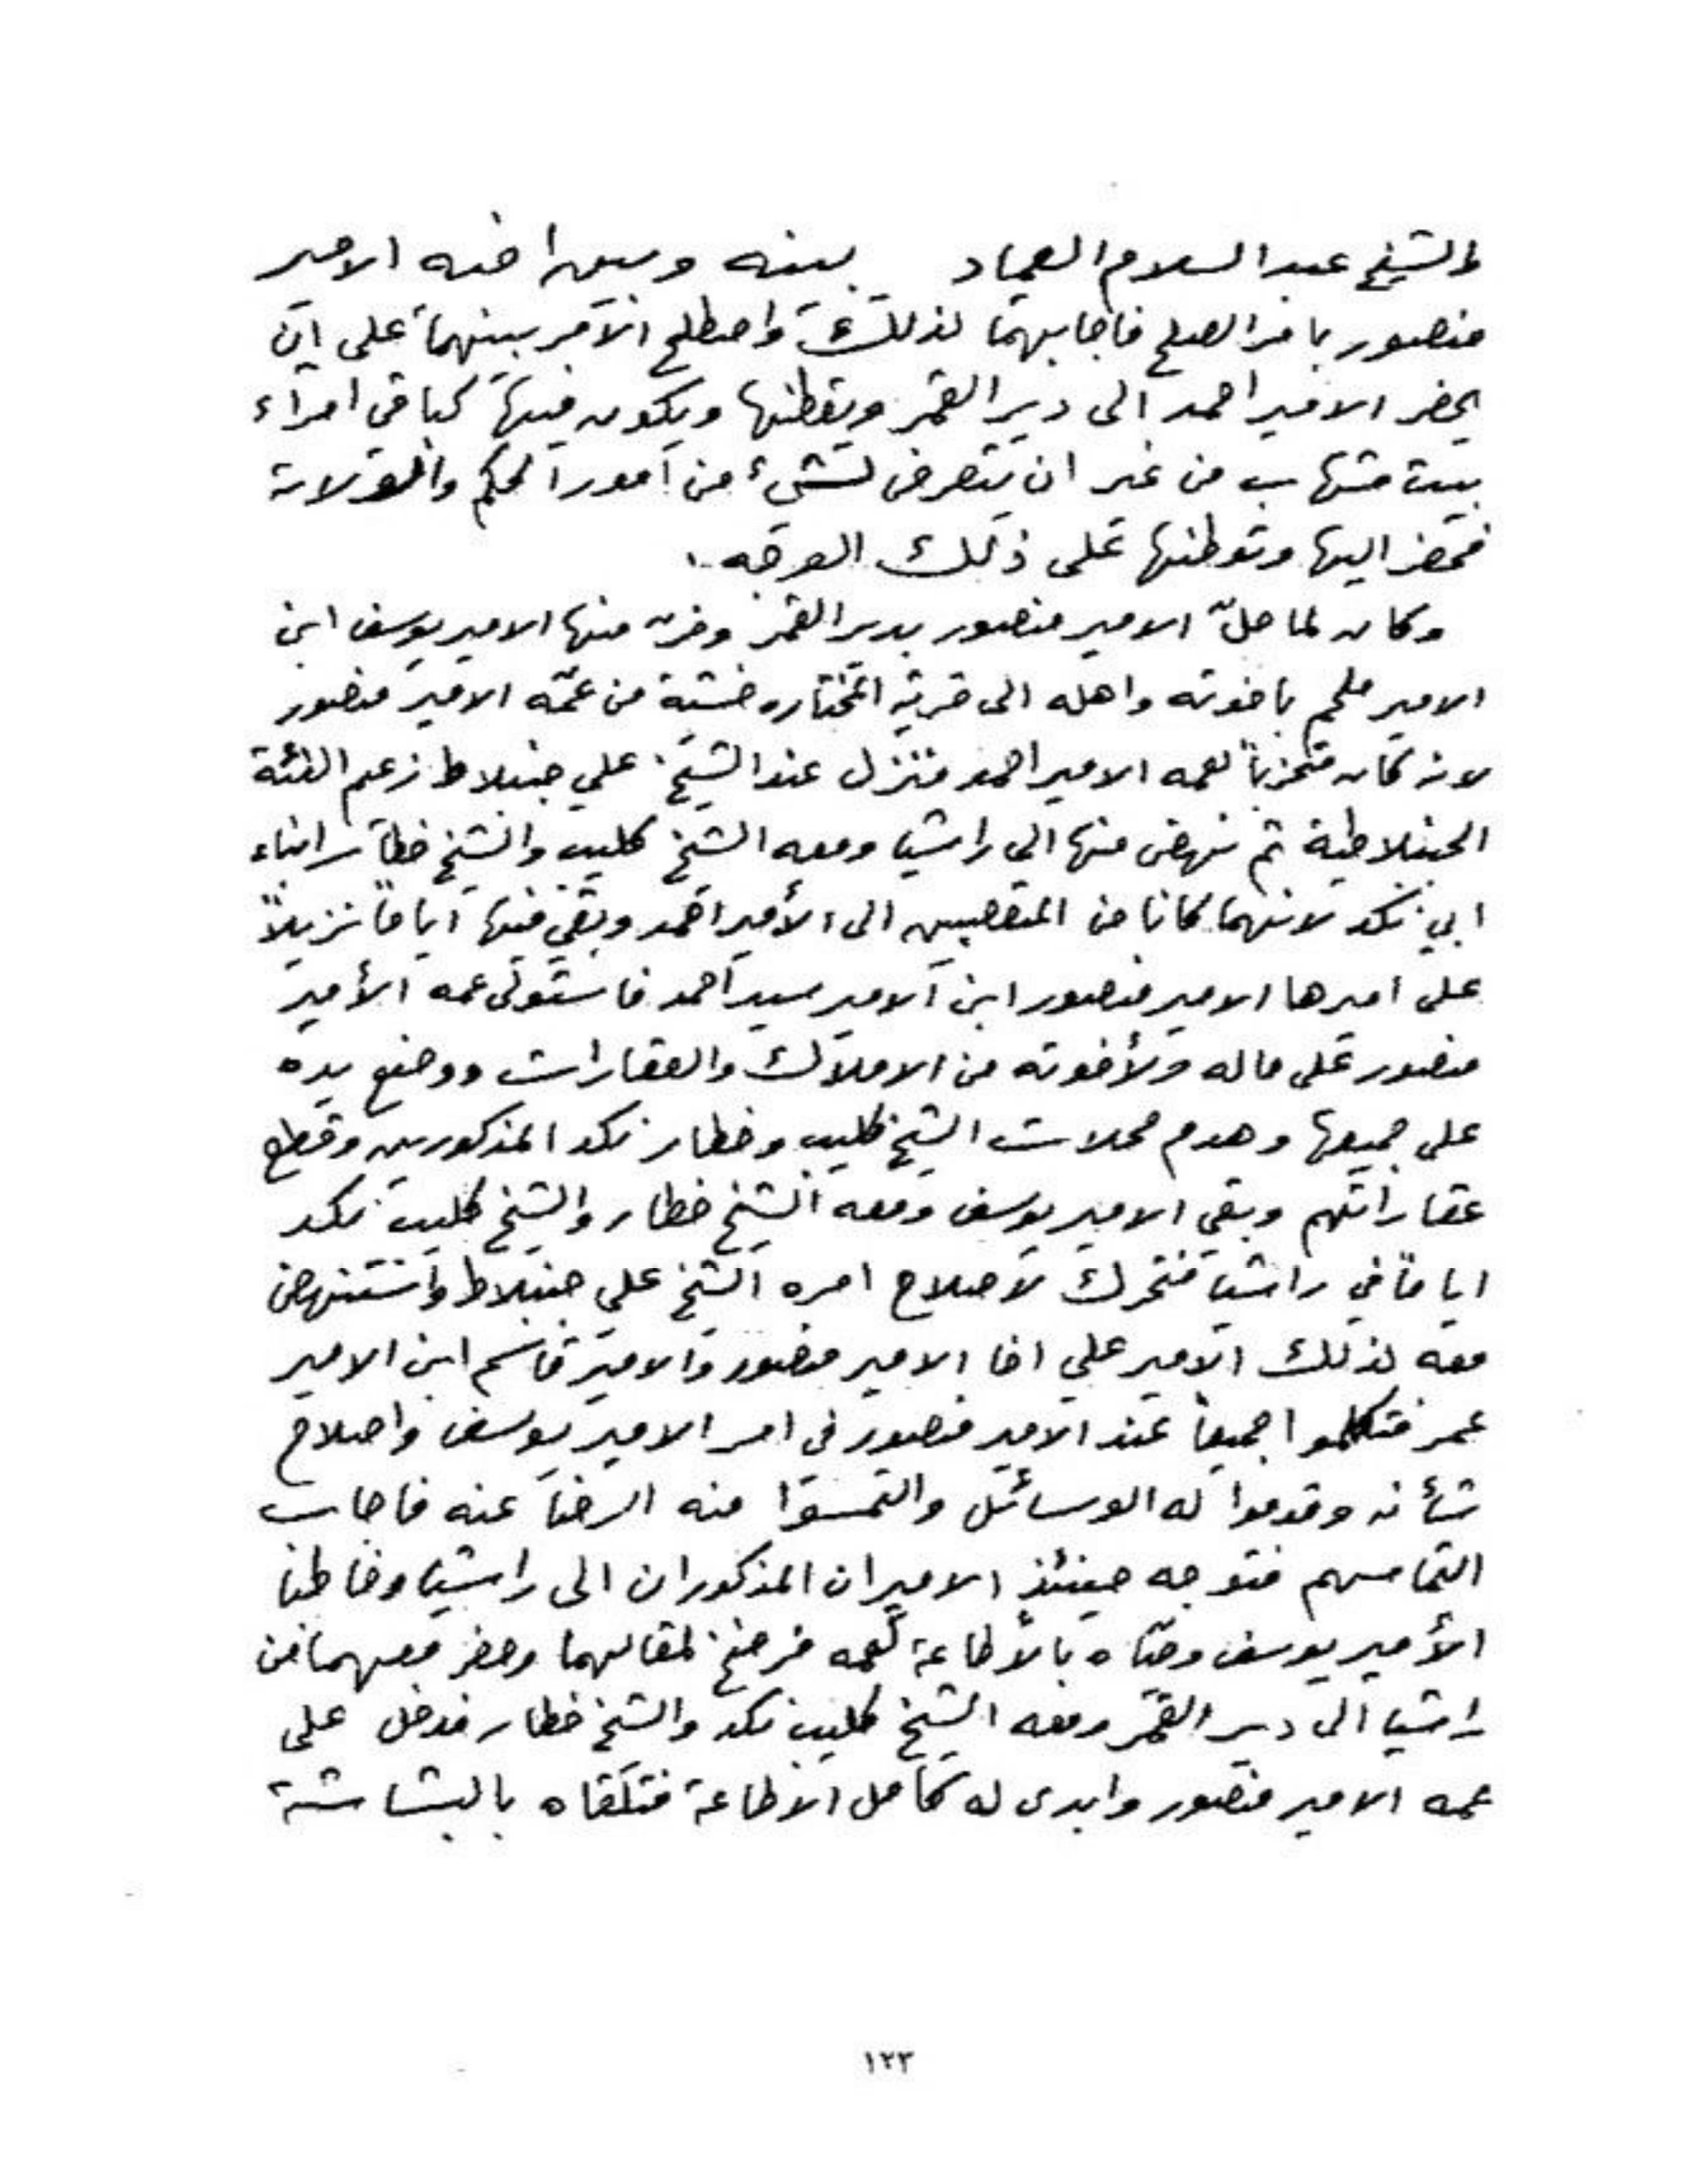 والشيخ عبد السلام العماد بينه وبين اخيه الامير
منصور بامر الصلح فاجابهما لذلك واصطلح الامر بينهما على ان
يحضر الامير احمد الى دير القمر ويقطنها ويكون فيها كباقي امراء
بيت شهاب من غير ان يتعرض لشيء من امور الحكم والولاية
فحضر اليها وتوطنها على ذلك الوجه .
وكان لما حلّ الامير منصور بدير القمر وفرّ منها الامير يوسف ابن
الامير ملحم باخوته واهله الى قرية المختاره خشية من عمّه الامير منصور
لانه كان متحزباً لعمه الامير احمد فنزل عند الشيخ علي جنبلاط زعيم الفئة
الجنبلاطية ثم نهض منها الى راشيا ومعه الشيخ كليب والشيخ خطار ابناء
ابي نكد لانهما كانا من المتعصبين الى الأمير احمد وبقي فيها اياماً نزيلاً
على اميرها الامير منصور ابن الامير سيد احمد فاستولى عمه الأمير
منصور على ماله ولأخوته من الاملاك والعقارات ووضع يده
على جميعها وهدم محلات الشيخ كليب وخطار نكد المذكورين وقطع
عقاراتهم وبقي الامير يوسف ومعه الشيخ خطار والشيخ كليب نكد
اياماً في راشيا فتحرك لاصلاح امره الشيخ علي جنبلاط واستنهض
معه لذلك الامير علي اخا الامير منصور والامير قاسم ابن الامير
عمر فتكلموا جميعاً عند الامير منصور في امر الامير يوسف واصلاح
شأنه وقدموا له الوسائل والتمسوا منه الرضا عنه فاجاب
التماسهم فتوجه حينئذٍ الاميران المذكوران الى راشيا وخاطبا
الأمير يوسف وحثاه بالأطاعة لعمه فرضخ لمقالهما وحضر معهما من
راشيا الى دير القمر ومعه الشيخ كليب نكد والشيخ خطار فدخل على
عمه الامير منصور وابدى له كامل الاطاعة فتلقاه بالبشاشة
١٢٣